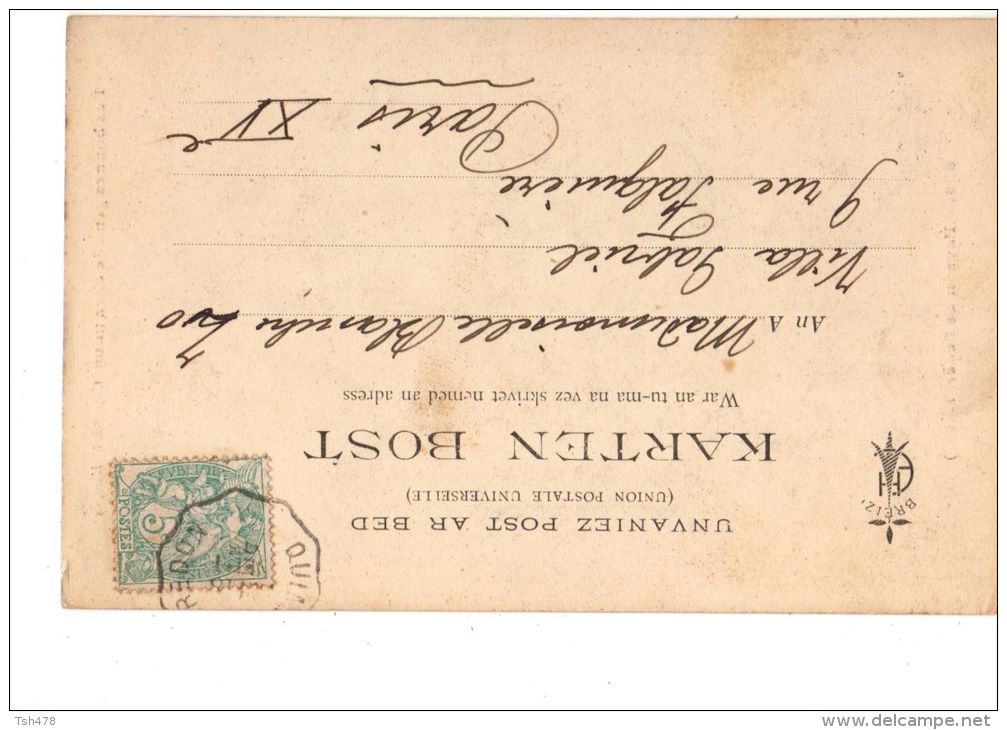 UNVANIEZ POST AR BED
(UNION POSTALE UNIVERSELLE)
KARTEN BOST
War an tu-ma na vez skrivet nemed an adress
BREIZ
An A Mademoiselle Blanche
Villa Gabriel
9 rue Falguière
Paris XVe
5
POSTES
REDON
QUI
Tsh478
www.delcampe.net